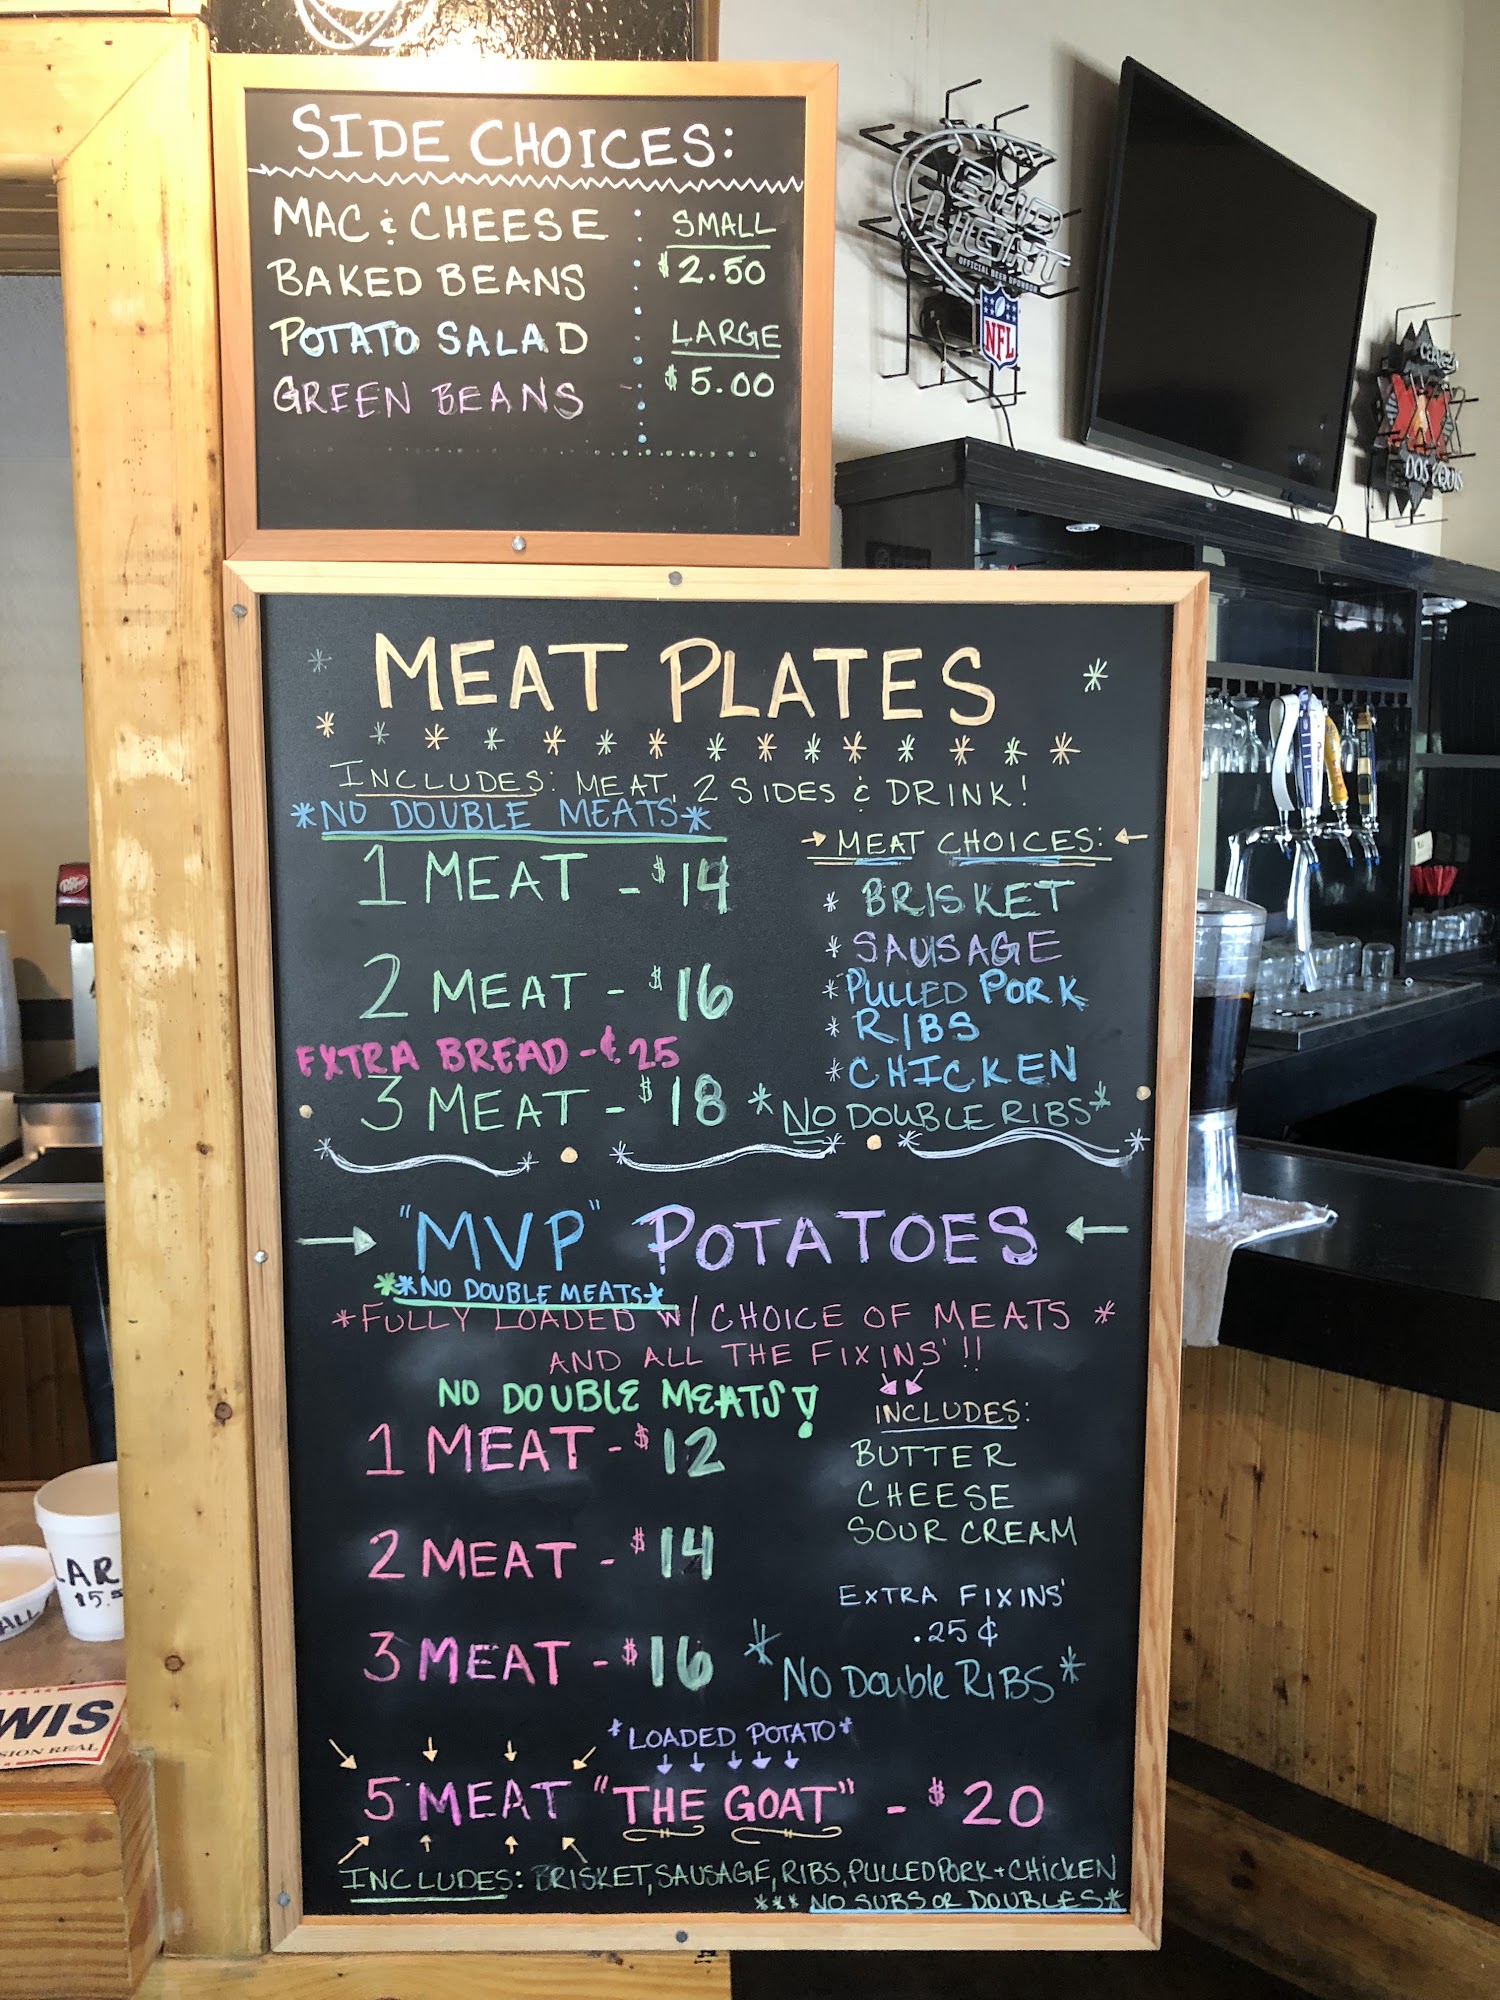 SIDE CHOICES:
MAC & CHEESE
BAKED BEANS
POTATO SALAD
GREEN BEANS
SMALL
$2.50
LARGE
$5.00
BUD
LIGHT
OFFICIAL BEER SPONSOR
NFL
DOS EQUIS
MEAT PLATES
INCLUDES: MEAT, 2 SIDES & DRINK!
*NO DOUBLE MEATS*
1 MEAT - $14
2 MEAT - $16
EXTRA BREAD - ¢.25
3 MEAT - $18
MEAT CHOICES:
* BRISKET
* SAUSAGE
* PULLED PORK
* RIBS
* CHICKEN
*NO DOUBLE RIBS*
"MVP" POTATOES
**NO DOUBLE MEATS*
*FULLY LOADED W/ CHOICE OF MEATS *
AND ALL THE FIXINS'!!
NO DOUBLE MEATS!
1 MEAT - $12
2 MEAT - $14
3 MEAT - $16
INCLUDES:
BUTTER
CHEESE
SOUR CREAM
EXTRA FIXINS'
.25¢
*NO DOUBLE RIBS*
*LOADED POTATO*
5 MEAT "THE GOAT" - $20
INCLUDES: BRISKET, SAUSAGE, RIBS, PULLED PORK + CHICKEN
*** NO SUBS OR DOUBLES*
LAR
$5.
ALL
WIS
SION REAL